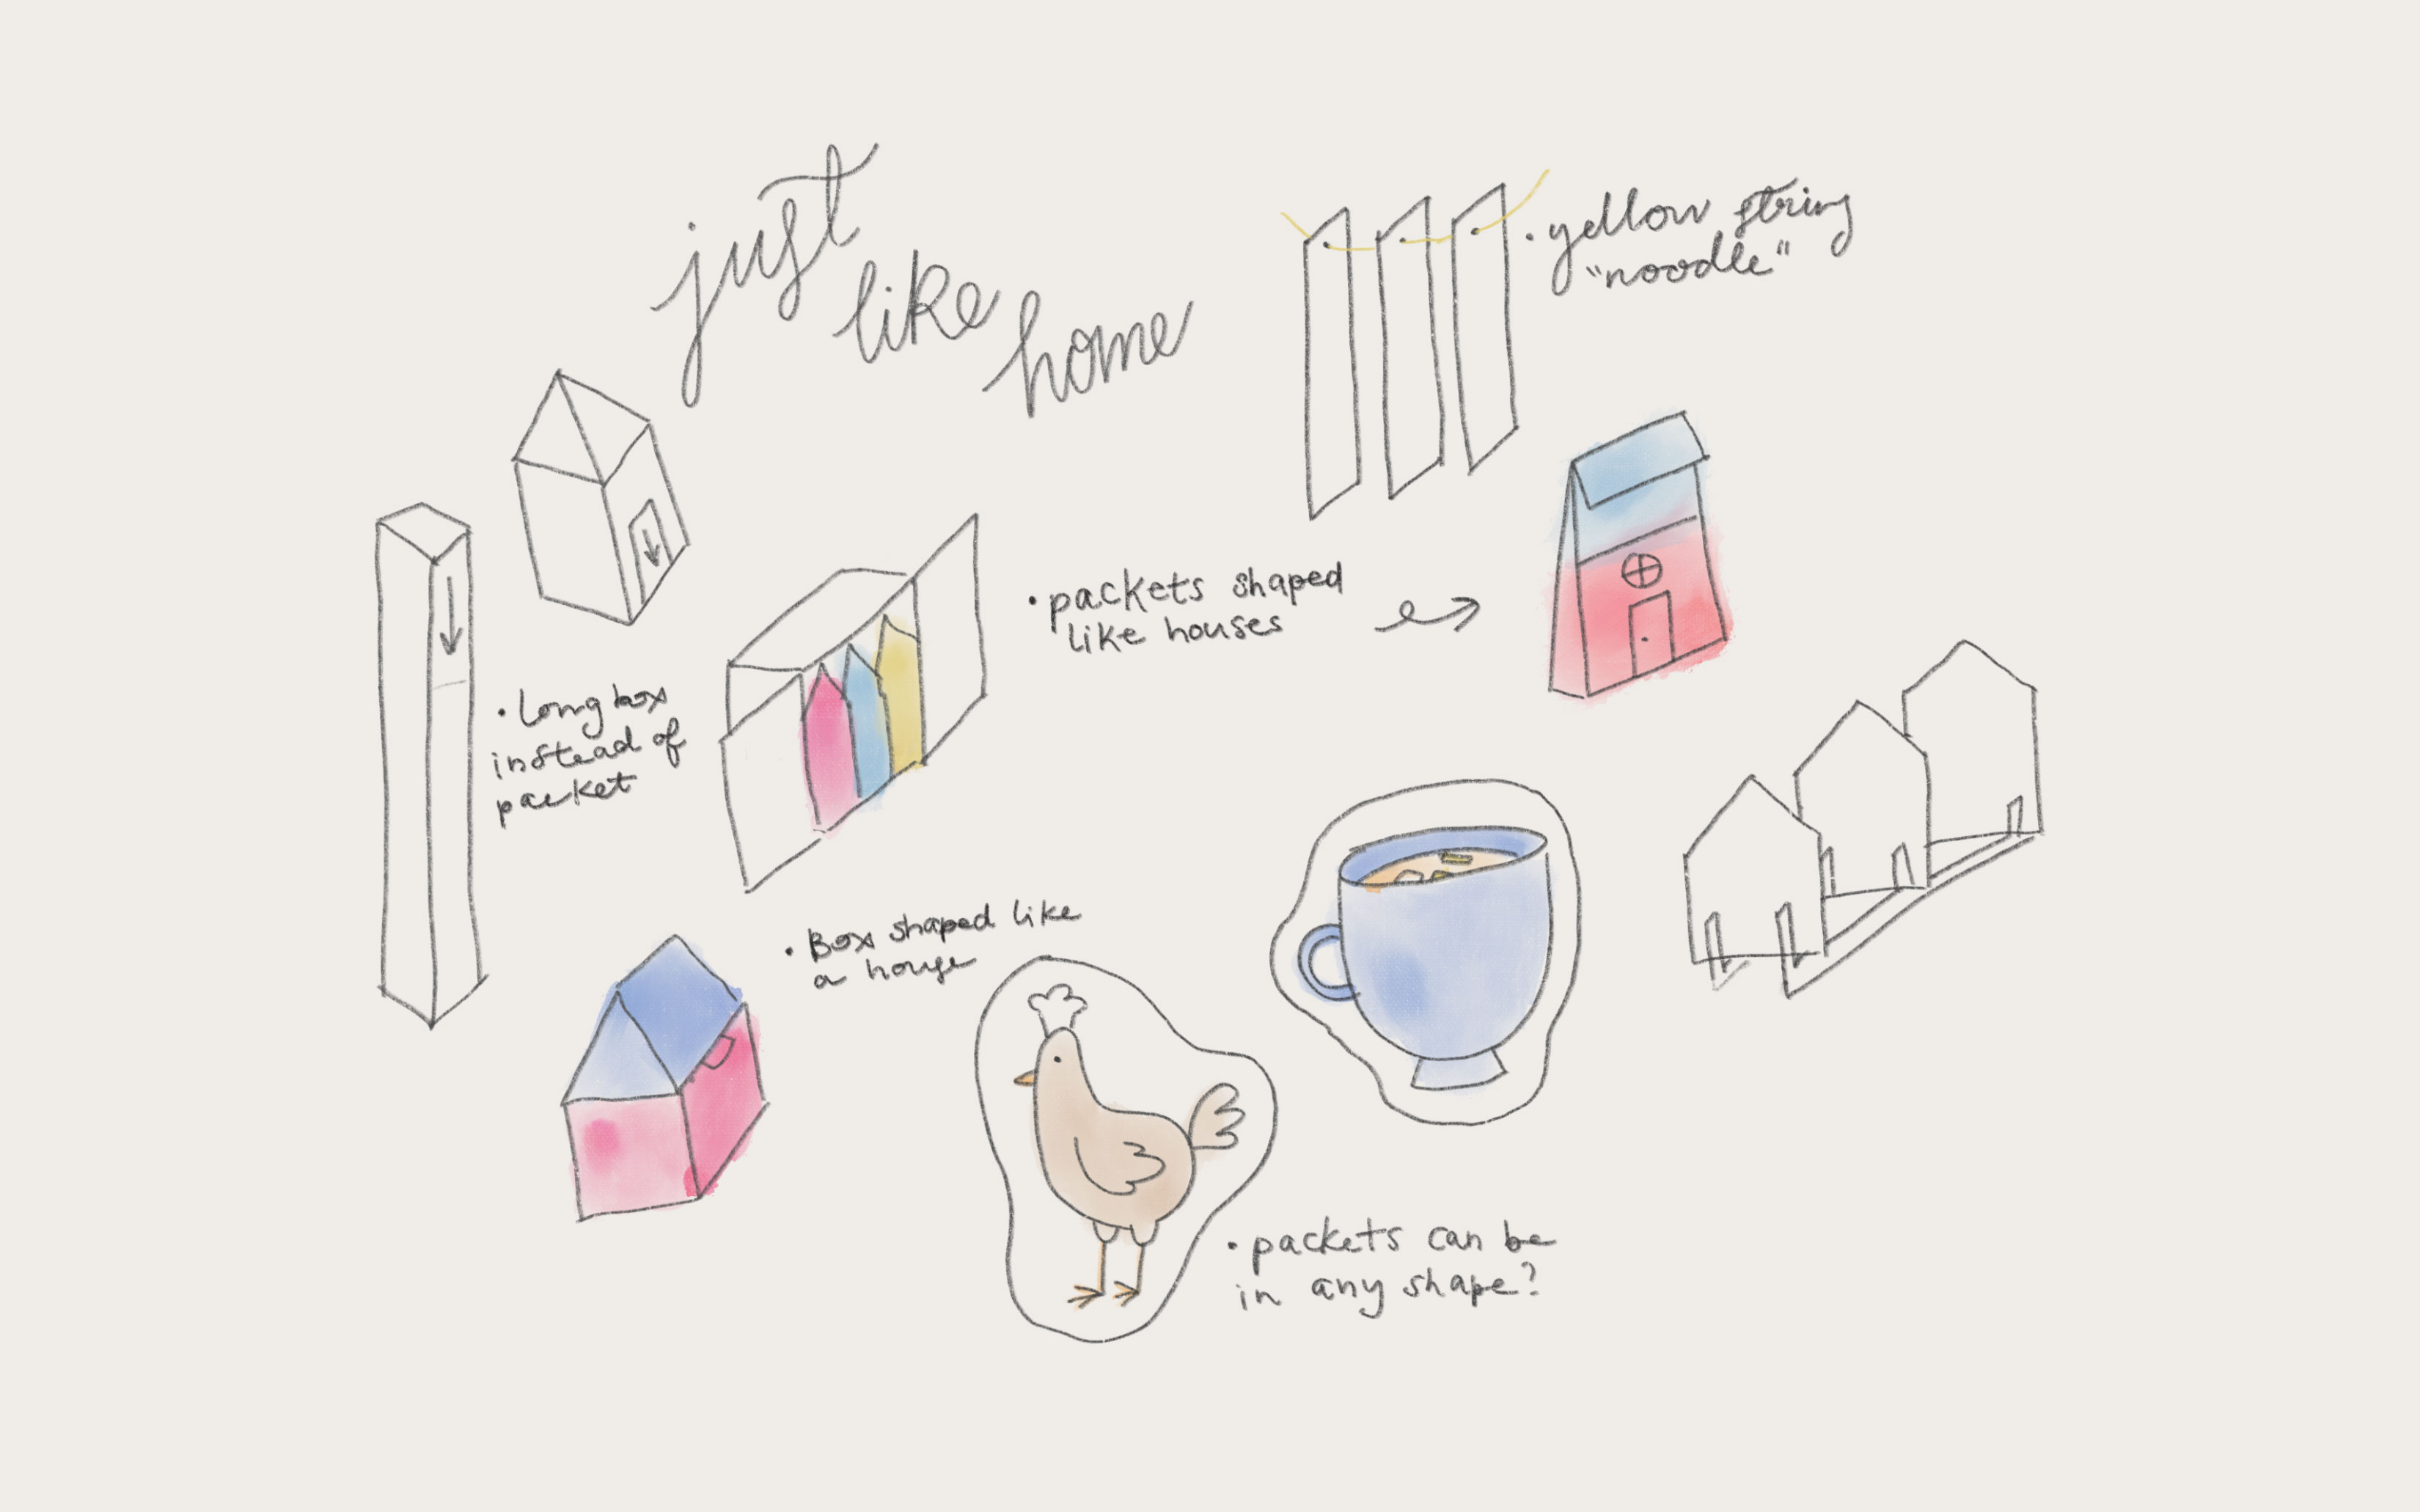 just
like
home
• yellow string
"noodle"
• packets shaped
like houses
• Long box
instead of
packet
• Box shaped like
a house
• packets can be
in any shape?